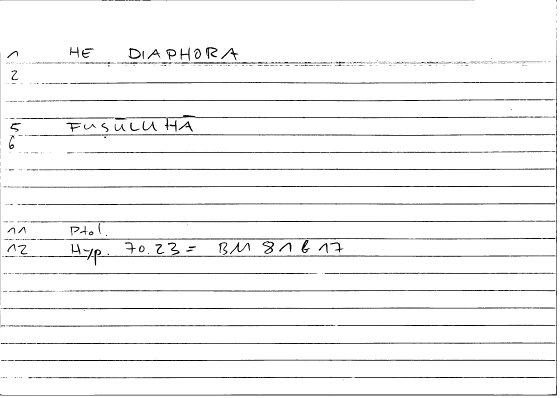 1 HE DIAPHORA
2
5 FUṢŪLUHĀ
6
11 Ptol.
12 Hyp. 70.23 = BM 81 b 17